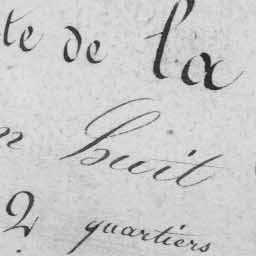 te de la
n huit
2 quartiers